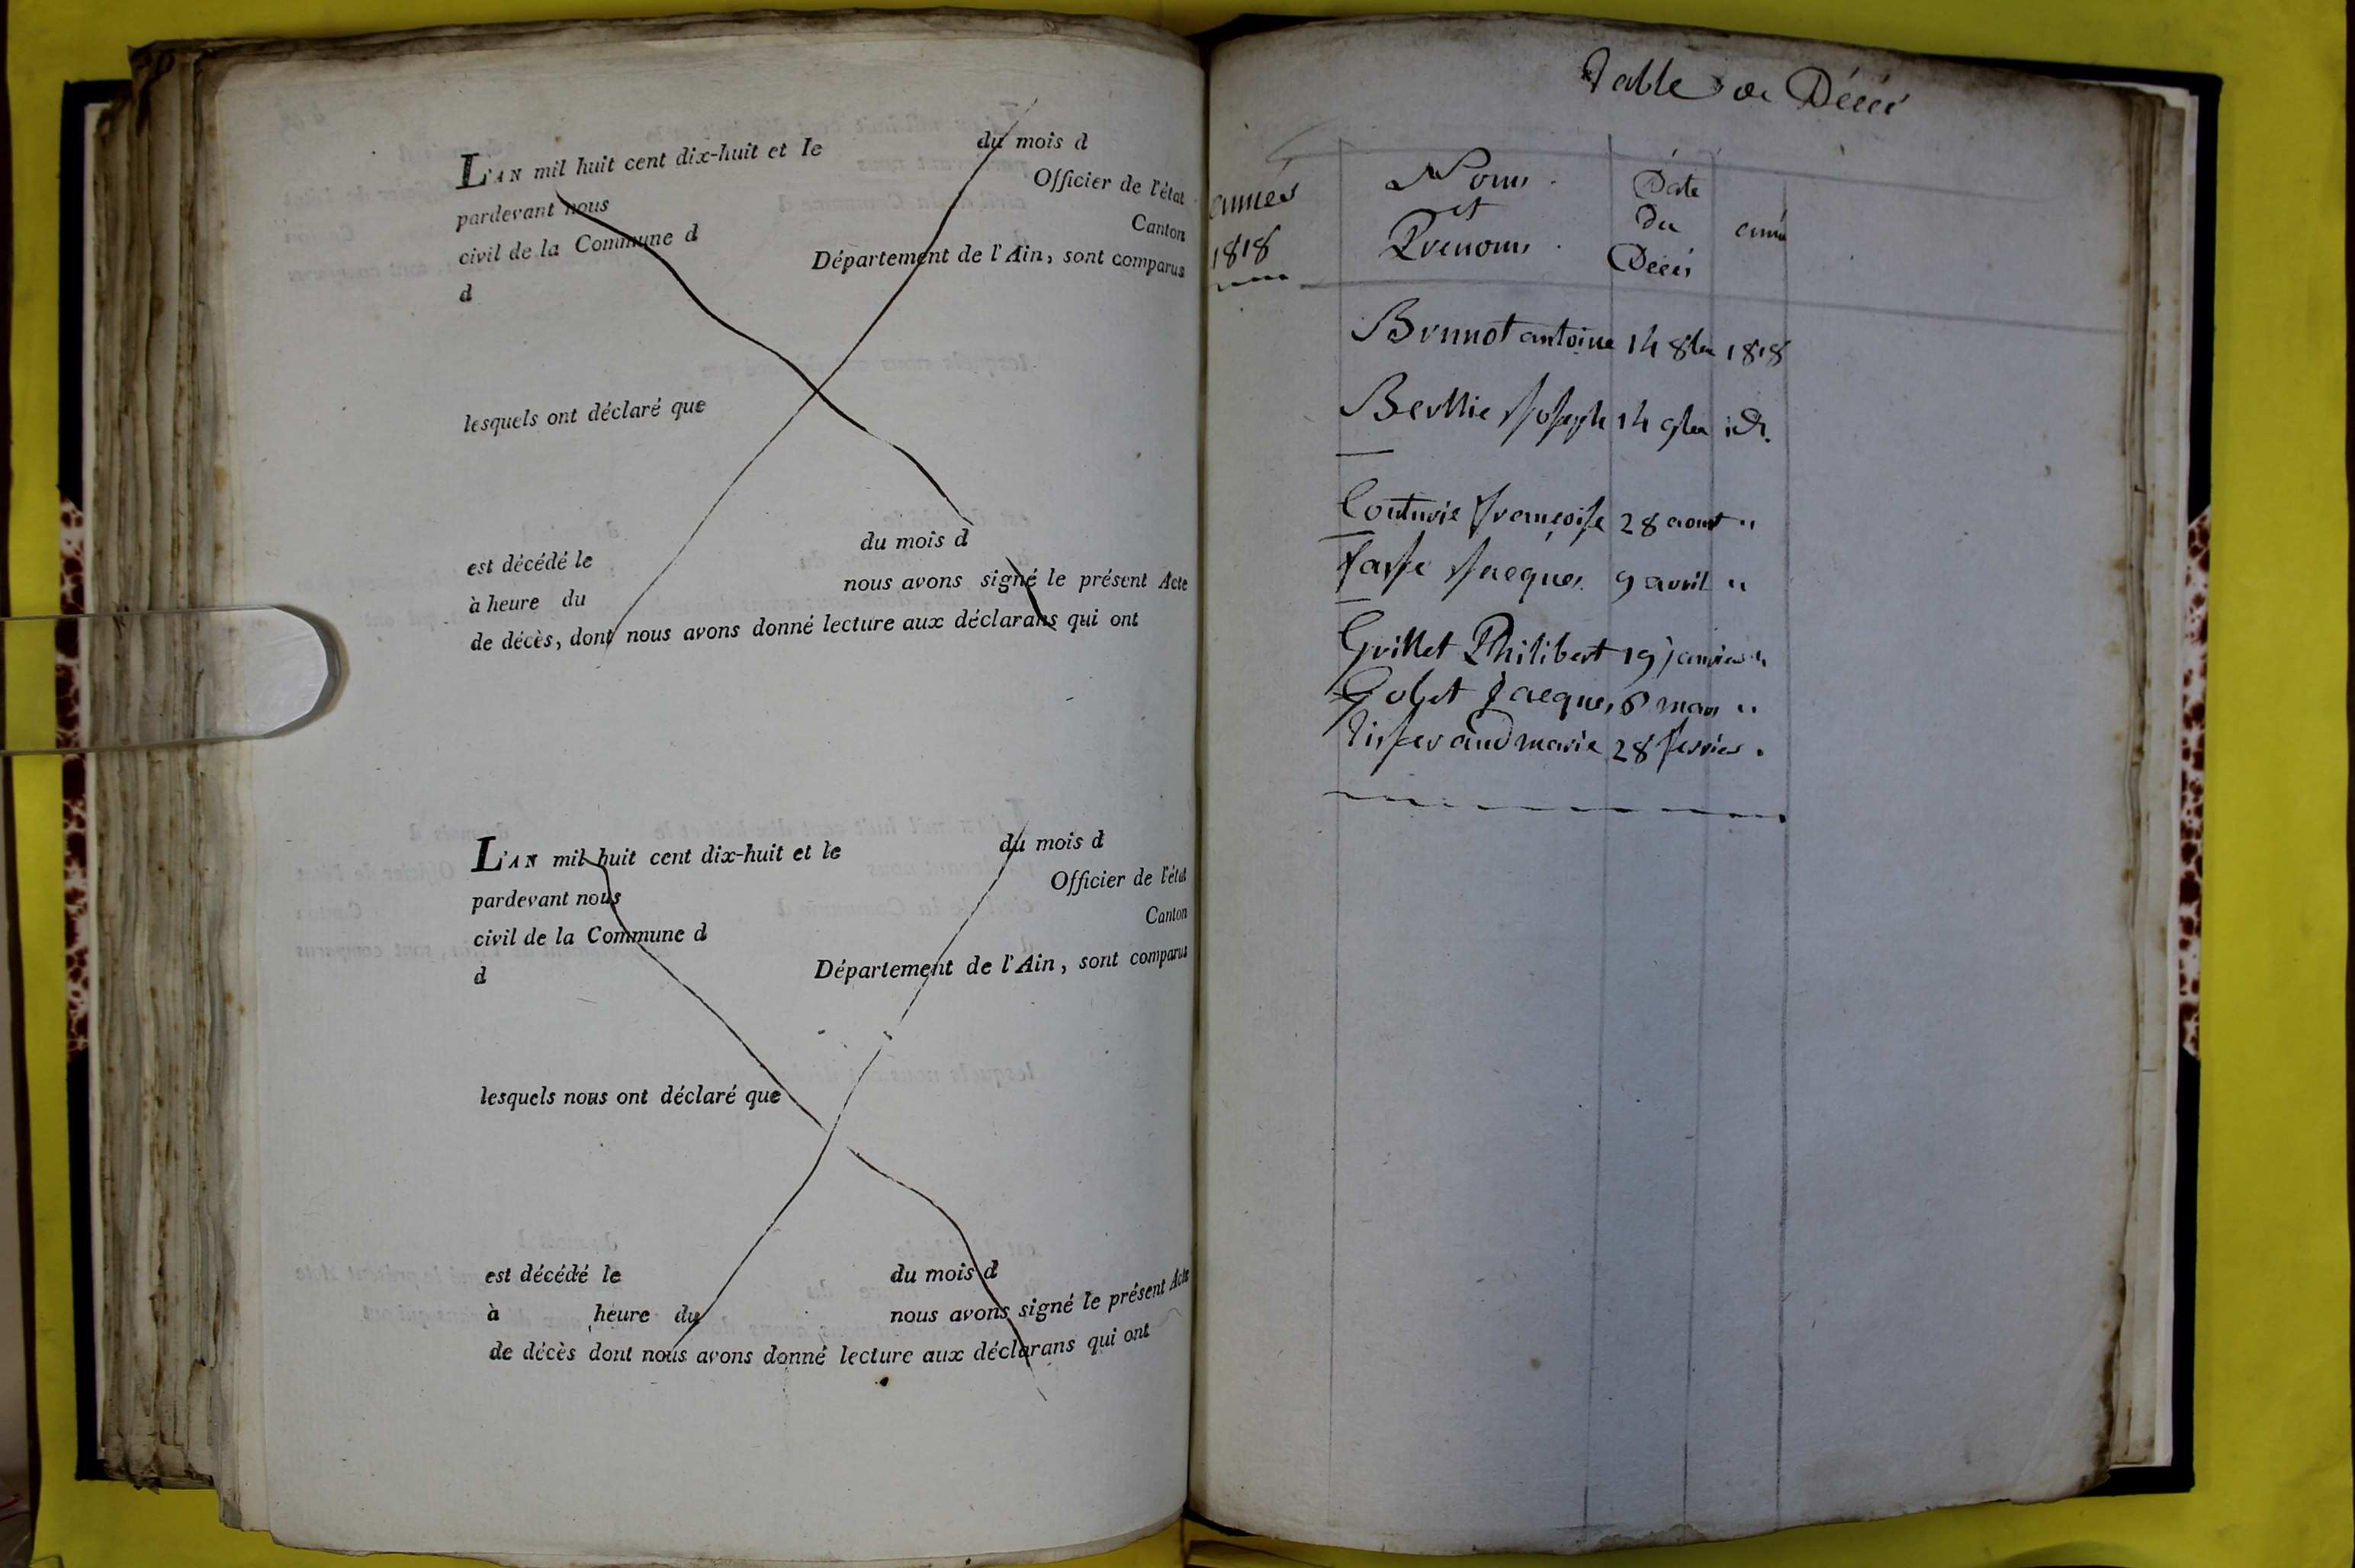 L'AN mil huit cent dix-huit et le du mois d
pardevant nous Officier de l'état
civil de la Commune d Canton
d Département de l'Ain, sont comparus
lesquels ont déclaré que
est décédé le du mois d
à heure du nous avons signé le présent Acte
de décès, dont nous avons donné lecture aux déclarans qui ont
L'AN mil huit cent dix-huit et le du mois d
pardevant nous Officier de l'état
civil de la Commune d Canton
d Département de l'Ain, sont comparus
lesquels nous ont déclaré que
est décédé le du mois d
à heure du nous avons signé le présent Acte
de décès dont nous avons donné lecture aux déclarans qui ont
Table de Décés
années
1818
Noms
et
Prénoms
Date
du
Décés
année
antoine 14 8bre 1818
Joseph 14 9bre id.
Couturie françoise 28 aout "
Jacques 9 avril "
Grillet Philibert 19 janvier "
Gobet Jacques 8 mars "
marie 28 fevrier